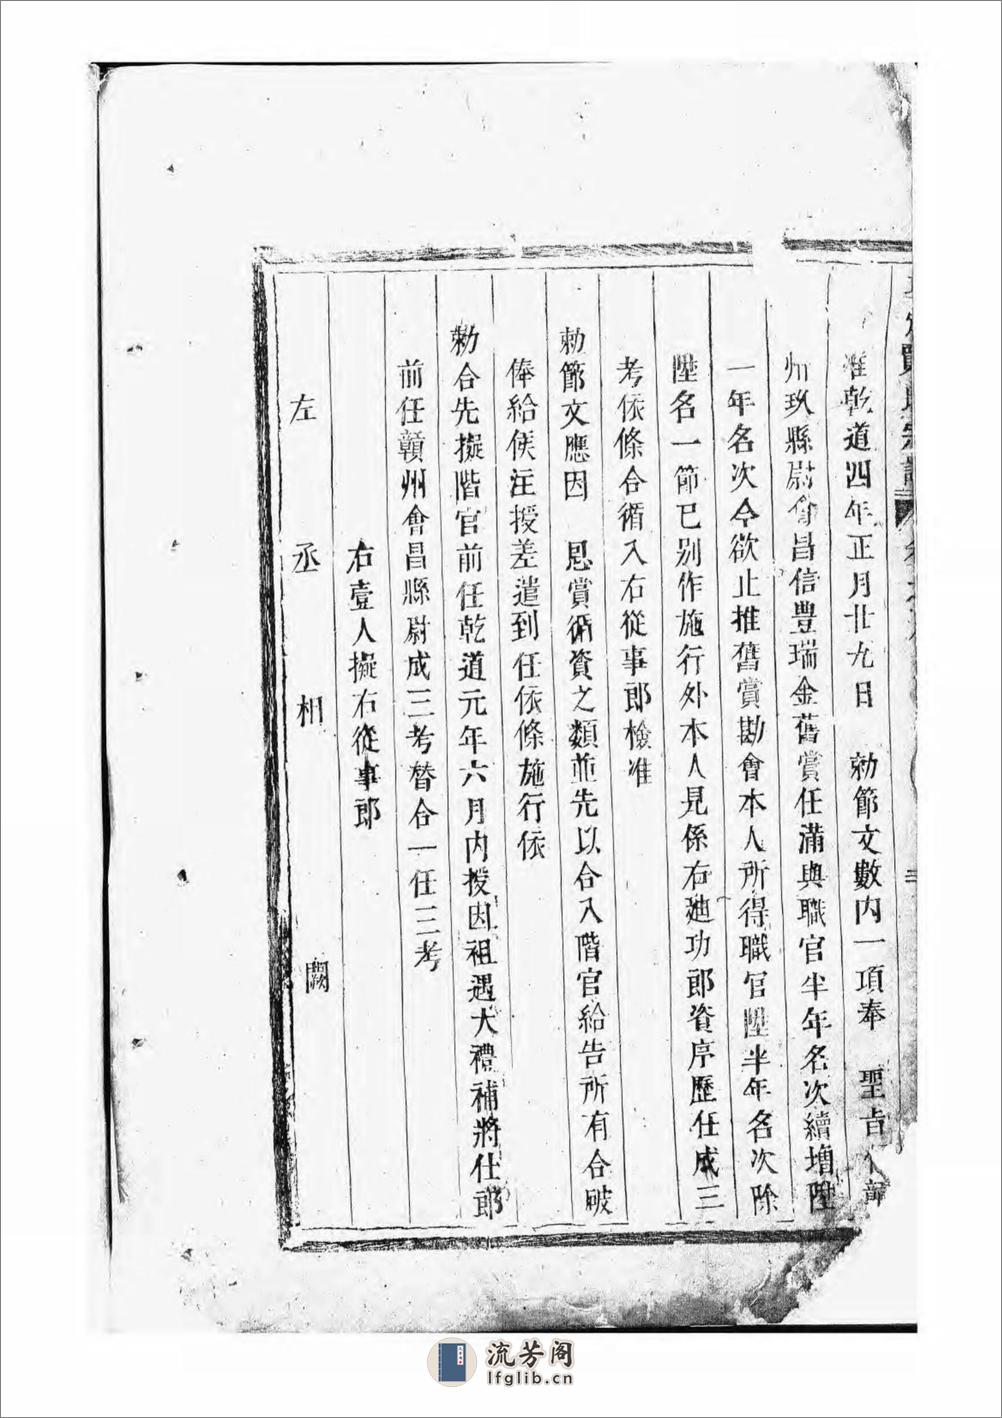 賈氏宗譜
准乾道四年正月廿九日 勑節文數內一項奉 聖旨
州玖縣尉會昌信豊瑞金舊賞任滿與職官半年名次續增陞
一年名次今欲止推舊賞勘會本人所得職官陞半年名次除
陞名一節已別作施行外本人見係右廸功郎資序歷任成三
考依條合循入右從事郎檢准
勑節文應因 恩賞循資之類並先以合入階官給告所有合破
俸給候注授差遣到任依條施行依
勑合先擬階官前任乾道元年六月內授因祖遇大禮補將仕郎
前任贛州會昌縣尉成三考替合一任三考
右壹人擬右從事郎
左 丞 相 闕
流芳阁
lfglib.cn